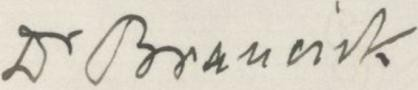 Dr Brancsik